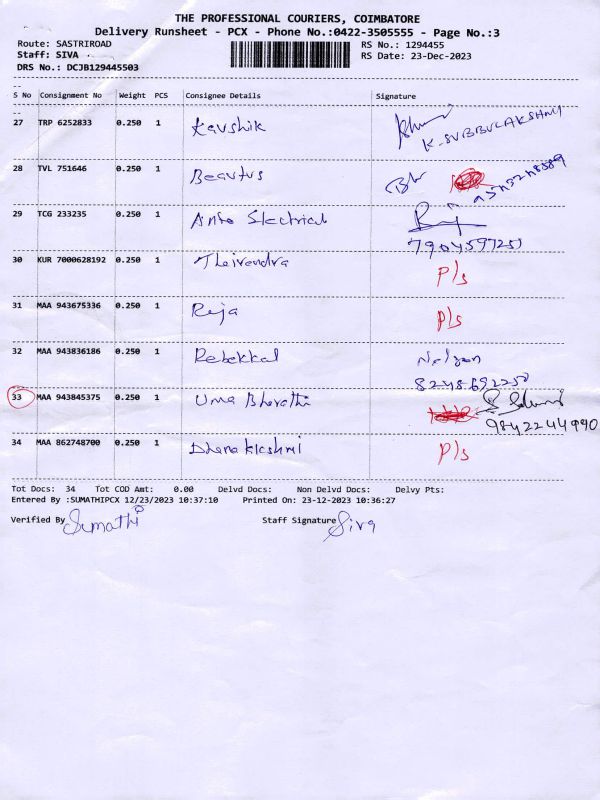 THE PROFESSIONAL COURIERS, COIMBATORE
Delivery Runsheet - PCX - Phone No.:0422-3505555 - Page No.:3
Route: SASTRIROAD RS No.: 1294455
Staff: SIVA RS Date: 23-Dec-2023
DRS No.: DCJB129445503
S No Consignment No Weight PCS Consignee Details Signature
27 TRP 6252833 0.250 1 Kavshik K. SUBBULAKSHMI
28 TVL 751646 0.250 1 Beautus
29 TCG 233235 0.250 1 Electrical
7904597251
30 KUR 7000628192 0.250 1 Theivendra P/s
31 MAA 943675336 0.250 1 Reja P/s
32 MAA 943836186 0.250 1 Rebekkal Nelson
8248692250
33 MAA 943845375 0.250 1 Uma Bharathi
9842244990
34 MAA 862748700 0.250 1 Dhanaklakshmi P/s
Tot Docs: 34 Tot COD Amt: 0.00 Delvd Docs: Non Delvd Docs: Delvy Pts:
Entered By :SUMATHIPCX 12/23/2023 10:37:10 Printed On: 23-12-2023 10:36:27
Verified By Sumathi Staff Signature Siva